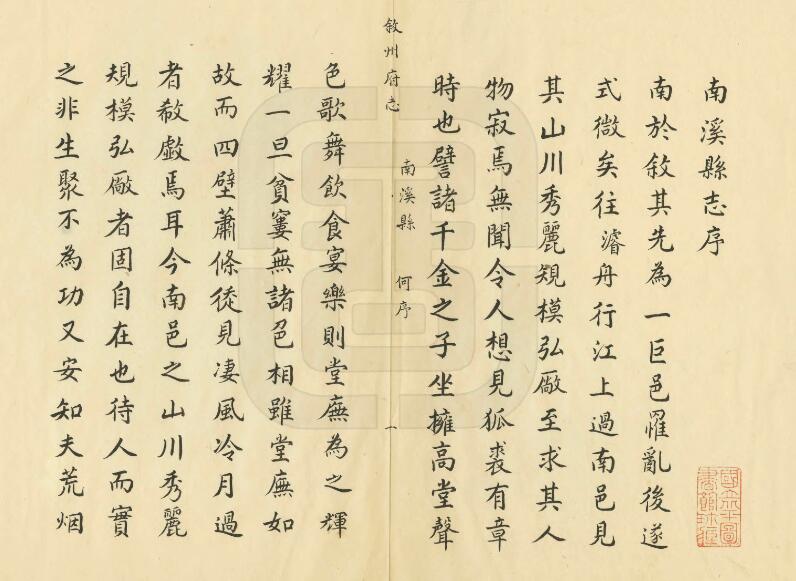 南溪縣志序
南於敘其先為一巨邑罹亂後遂
式微矣往濬舟行江上過南邑見
其山川秀麗規模弘廠至求其人
物寂焉無聞令人想見狐裘有章
時也譬諸千金之子坐擁高堂聲
敘州府志
南溪縣 何序 一
色歌舞飲食宴樂則堂廡為之輝
耀一旦貧窶無諸色相雖堂廡如
故而四壁蕭條徒見凄風冷月過
者欷歔焉耳今南邑之山川秀麗
規模弘廠者固自在也待人而實
之非生聚不為功又安知夫荒烟